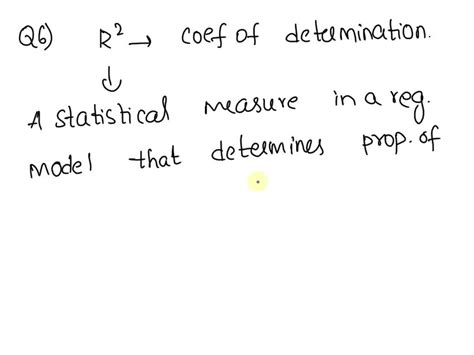 Q6) R² → coef of determination.
↓
A statistical measure in a reg.
model that determines prop. of